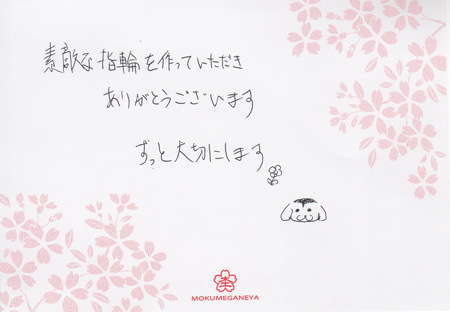 素敵な指輪を作っていただき
ありがとうございます
ずっと大切にします
MOKUMEGANEYA